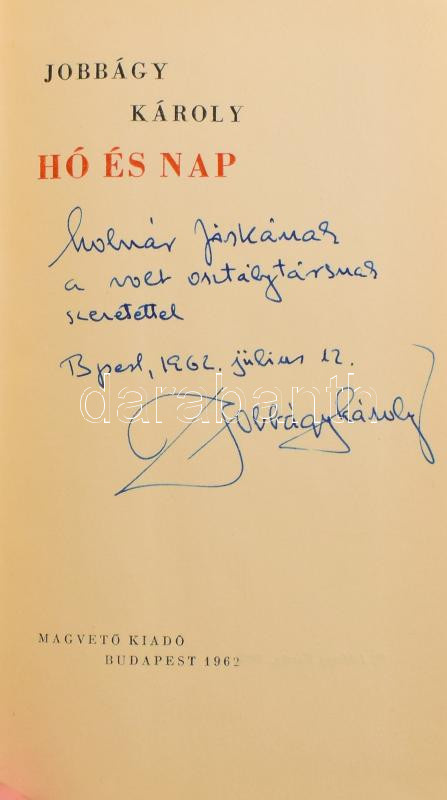 JOBBÁGY
KÁROLY
HÓ ÉS NAP
Molnár Jóskának
a volt osztálytársnak
szeretettel
Bpest, 1962. július 12.
darabanth
Jobbágy Károly
MAGVETŐ KIADÓ
BUDAPEST 1962